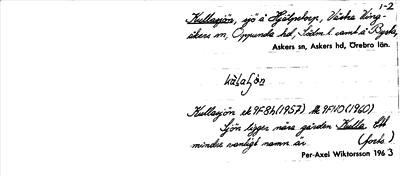 1-2
Kullasjön, sjö å Hjälpstorp, Västra Ving-
åkers sn, Oppunda hd, Södm l. samt å Bysta,
Askers sn, Askers hd, Örebro län.
Kullasjön ek 9F8h (1957)
Sjön ligger nära gården Kulla. Ett
mindre vanligt namn är (forts.)
Per-Axel Wiktorsson 196 3